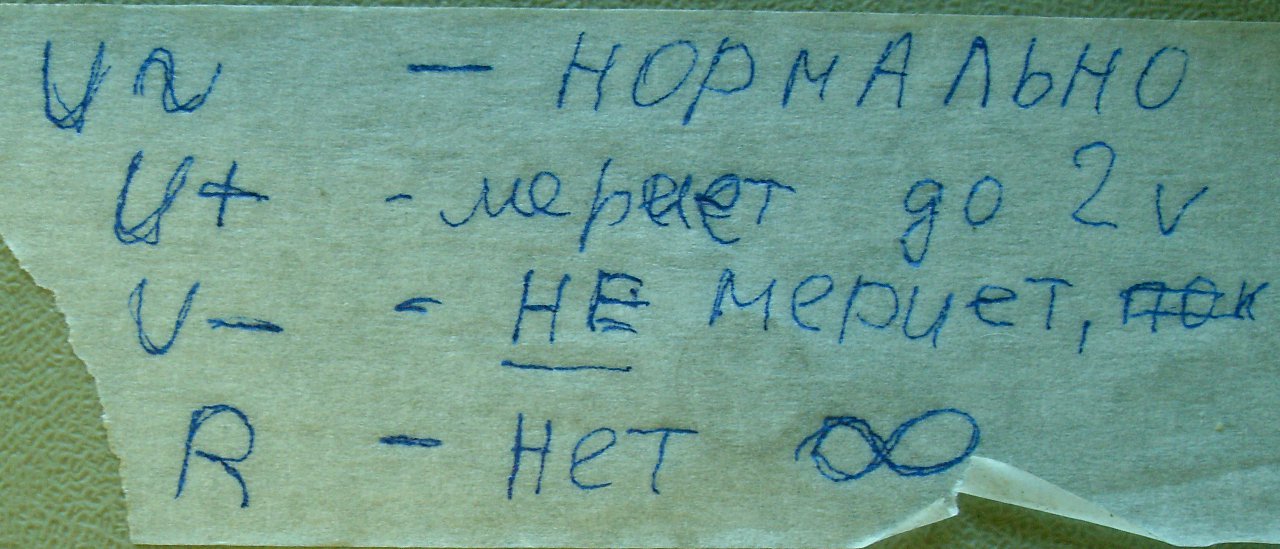 U~ - НОРМАЛЬНО
U+ - меряет до 2 v
U- - НЕ мериет,
R - нет ∞